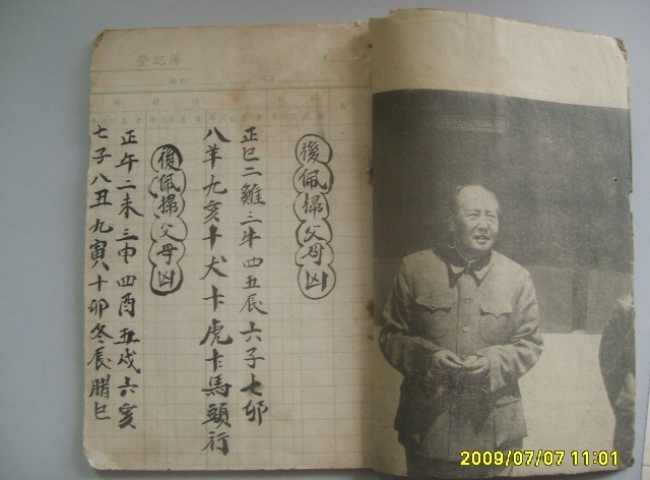 登記簿
後佩掃父母凶
正巳二雞三牛四五辰六子七卯
八羊九亥十犬卡虎卡馬頭行
後佩掃父母凶
正午二未三申四酉五戍六亥
七子八丑九寅十卯冬辰腊巳
2009/07/07 11:01